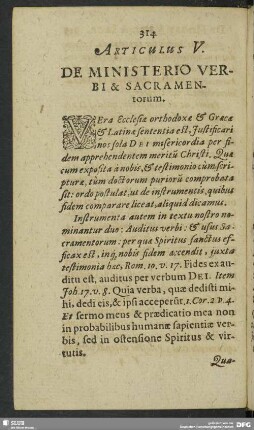 314
ARTICULUS V.
DE MINISTERIO VER-
BI & SACRAMEN-
torum.
VEra Ecclesiæ orthodoxæ & Græcæ
& Latinæ sententia est, Justificari
nos sola DEI misericordia per fi-
dem apprehendentem meritũ Christi. Quæ
cum exposita a nobis, & testimonio cùm scri-
pturæ, tùm doctorum puriorũ comprobata
sit: ordo postulat, ut de instrumentis, quibus
fidem comparare liceat, aliquid dicamus.
Instrumenta autem in textu nostro no-
minantur duo: Auditus verbi: & usus Sa-
cramentorum: per quæ Spiritus sanctus ef-
ficax est, inq́; nobis fidem accendit, juxta
testimonia hæc, Rom. 10. v. 17. Fides ex au-
ditu est, auditus per verbum DEI. Item
Joh. 17. v. 8. Quia verba, quæ dedisti mi-
hi, dedi eis, & ipsi acceperũt. 1. Cor. 2. v. 4.
Et sermo meus & prædicatio mea non
in probabilibus humanæ sapientiæ ver-
bis, sed in ostensione Spiritus & vir-
tutis.
Qua-
SLUB
DFG